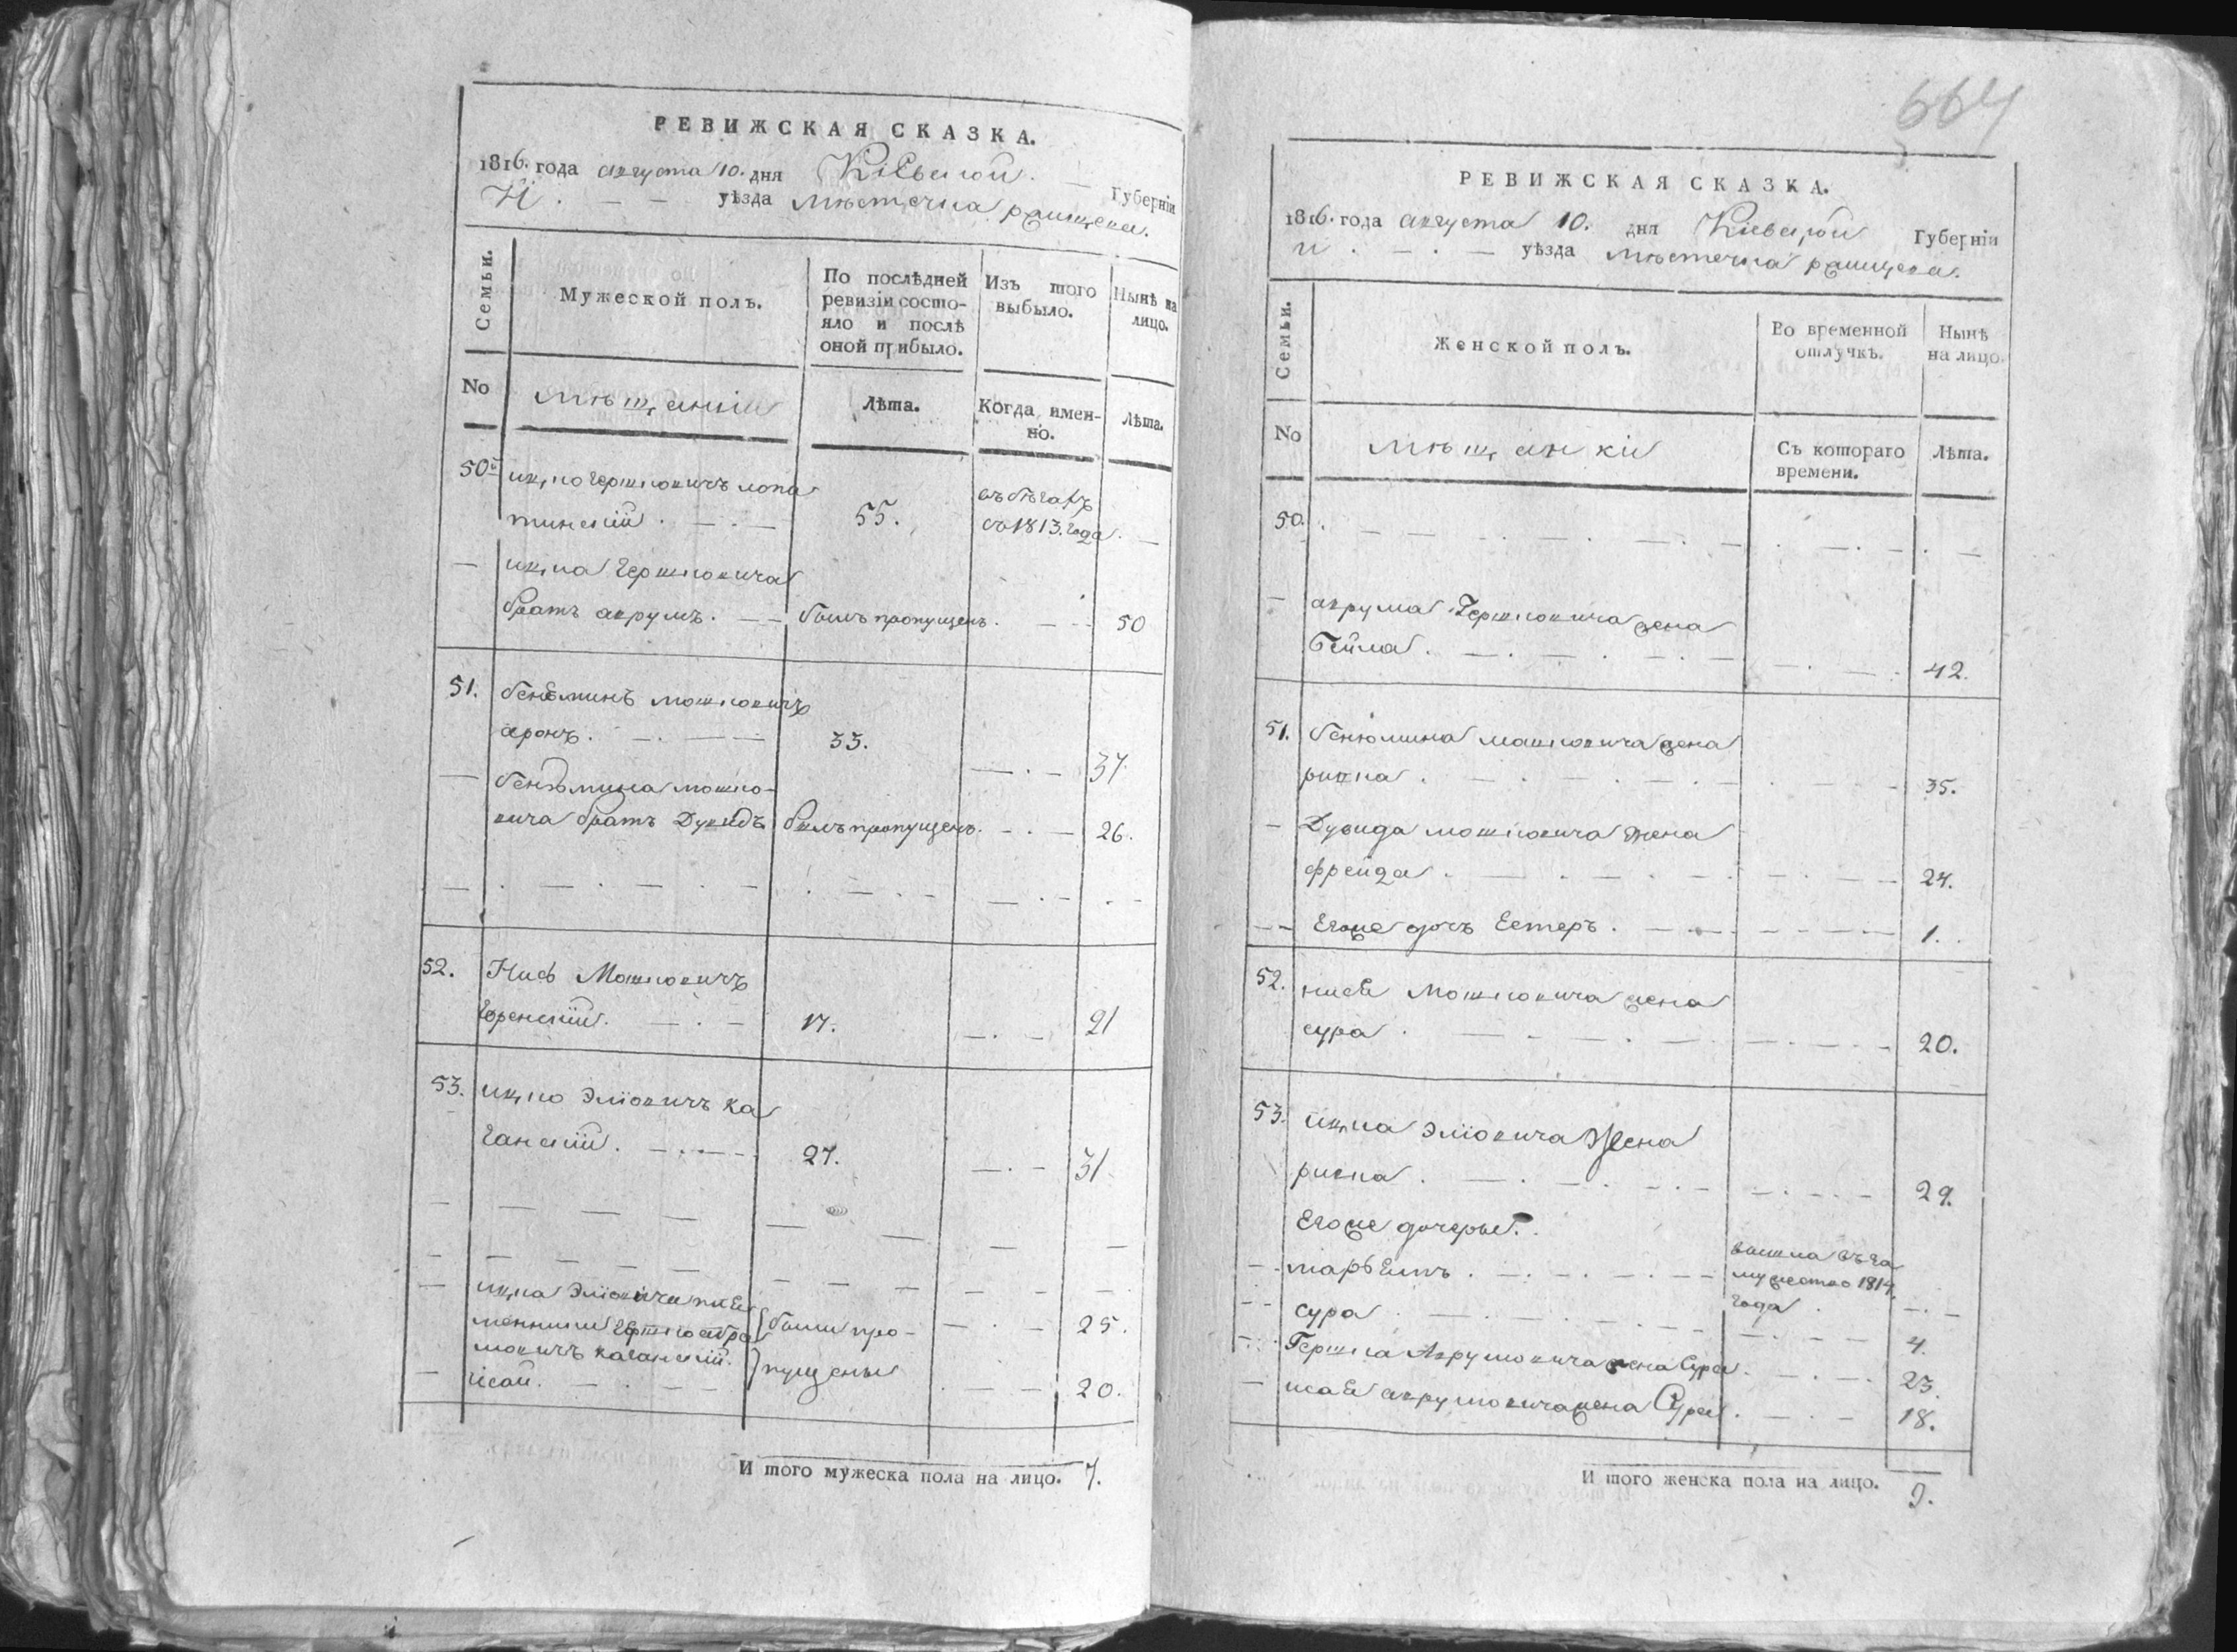 РЕВИЖСКАЯ СКАЗКА.
1816. года августа 10. дня Кіевской. Губерніи
И. уѣзда мѣстечка ращцева.
Семьи.
Мужеской полъ.
По послѣдней
ревизіи состо-
яло и послѣ
оной прибыло.
Изъ того
выбыло.
Нынѣ на
лицо.
No
мѣщанки
Лѣта.
Когда имен-
но.
Лѣта.
50й ицко гершковичъ лопа
тинскій. 55. въ бѣгахъ
съ 1813. года.
ицка гершковича
братъ аврумъ. былъ пропущенъ. 50
51. беніоминъ мошковичъ
аронъ. 33. 37
беніомина мошко-
вича братъ Дувидъ былъ пропущенъ. 26.
52. Мошковичъ
17. 21
53. ицко Эліовичъ ка
ганскій. 27. 31
ицка Эліовича пле
менники гершко авру были про- 25.
мовичъ каганскій. пущены
ісай. 20.
И того мужеска пола на лицо. 7.
664
РЕВИЖСКАЯ СКАЗКА.
1816. года августа 10. дня Кіевской Губерніи
и. уѣзда мѣстечка ращцева.
Семьи.
Женской полъ.
Во временной
отлучкѣ.
Нынѣ
на лицо.
No
мѣщанки
Съ котораго
времени.
Лѣта.
50.
аврума Гершковича жена
Бейла. 42.
51. беніомина мошковича жена
ривка. 35.
Дувида мошковича жена
фрейда. 24.
Егоже дочь Естеръ. 1.
52. мошковича жена
сура. 20.
53. ицка эліовича жена
ривка. 29.
Егоже дочерье.
марьемъ. вышла въ за
мужество 1814.
года.
сура. 4.
Гершка Аврумовича жена Сура. 23.
исае аврумовича жена Сура. 18.
И того женска пола на лицо. 9.